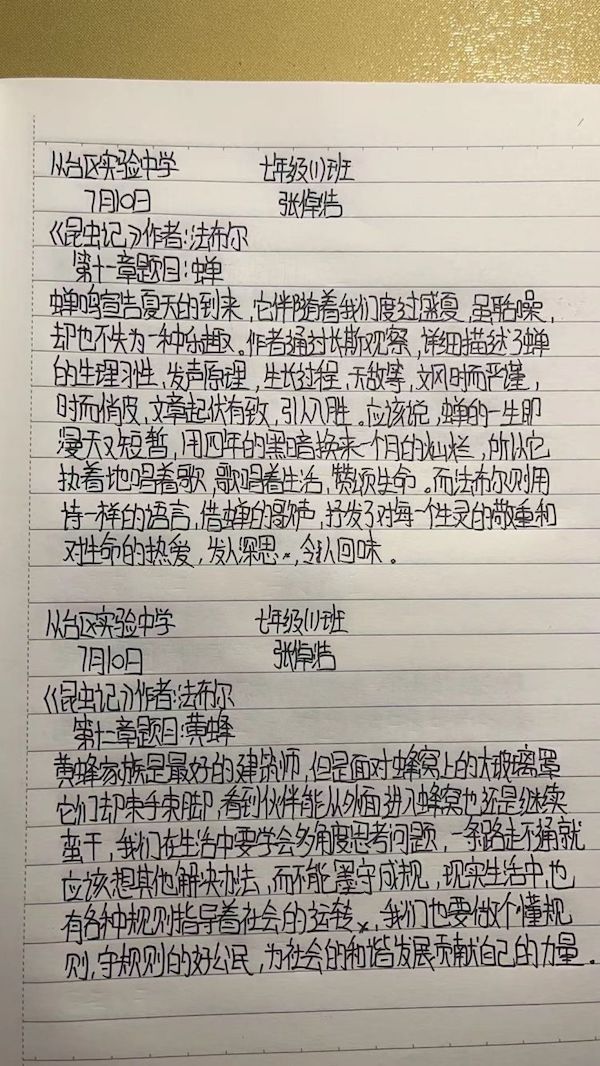 从台区实验中学 七年级(1)班
7月10日 张倬浩
《昆虫记》作者:法布尔
第十一章题目:蝉
蝉鸣宣告夏天的到来,它伴随着我们度过盛夏,虽聒噪,
却也不失为一种乐趣。作者通过长期观察,详细描述了蝉
的生理习性,发声原理,生长过程,天敌等,文风时而严谨,
时而俏皮,文章起伏有致,引人入胜。应该说,蝉的一生即
漫天又短暂,用四年的黑暗换来一个月的灿烂,所以它
执着地唱着歌,歌唱着生活,赞颂生命。而法布尔则用
诗一样的语言,借蝉的歌声,抒发了对每一个生灵的敬重和
对生命的热爱,发人深思,令人回味。
从台区实验中学 七年级(1)班
7月10日 张倬浩
《昆虫记》作者:法布尔
第十二章题目:黄蜂
黄蜂家族是最好的建筑师,但是面对蜂窝上的大玻璃罩
它们却束手束脚,看到伙伴能从外面进入蜂窝也还是继续
蛮干,我们在生活中要学会多角度思考问题,一条路走不通就
应该想其他解决办法,而不能墨守成规,现实生活中,也
有各种规则指导着社会的运转,我们也要做个懂规
则,守规则的好公民,为社会的和谐发展贡献自己的力量。